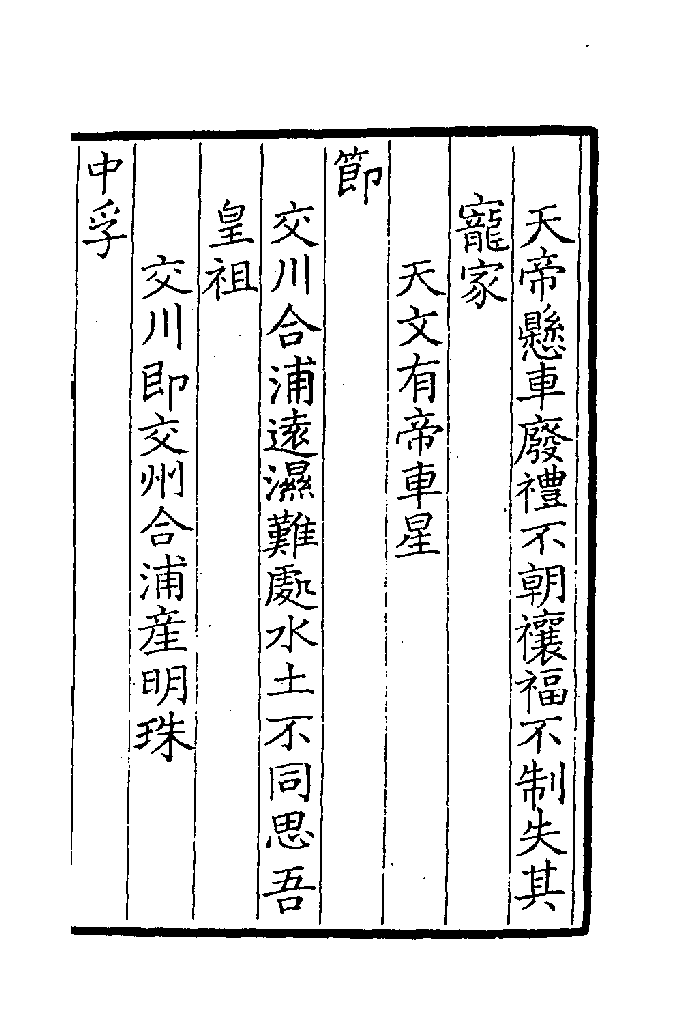 天帝懸車廢禮不朝禳福不制失其
寵家
天文有帝車星
節
交川合浦遠濕難處水土不同思吾
皇祖
交川即交州合浦産明珠
中孚